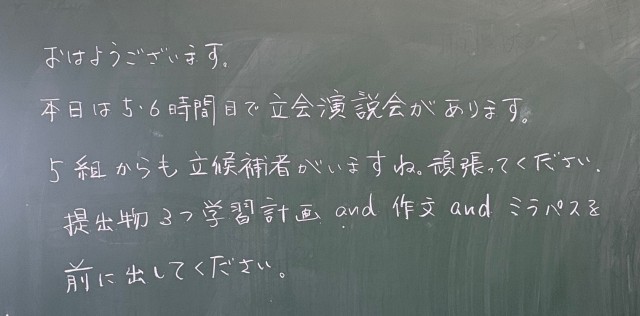 おはようございます。
本日は5・6時間目で立会演説会があります。
5組からも立候補者がいますね。頑張ってください.
提出物3つ学習計画and作文andミラパスを
前に出してください。